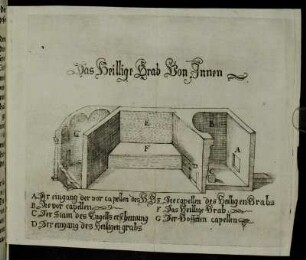 Das Heillige Grab Von Innen
C
E
B
F
A
D
G
A Der eingang der vor capellen des H. G.
B Der vor capellen
C Der Stain des Engelss erscheinung
D Der eingang des Heiligen grabs
E Die capellen des Heiligen Grabs
F Das Heillige Grab
G Der capellen